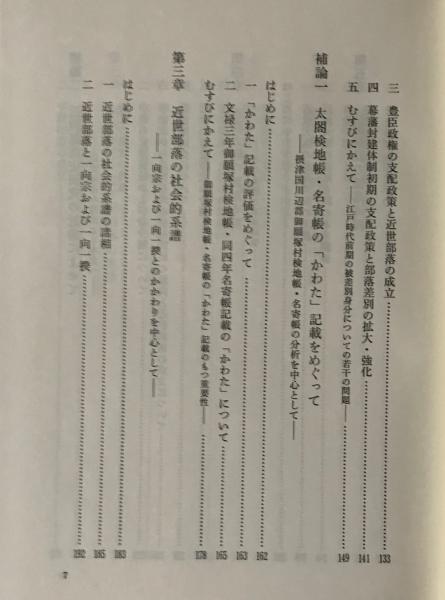 三 豊臣政権の支配政策と近世部落の成立 133
四 幕藩封建体制初期の支配政策と部落差別の拡大・強化 141
五 むすびにかえて——江戸時代前期の被差別身分についての若干の問題—— 149
補論一 太閤検地帳・名寄帳の「かわた」記載をめぐって
——摂津国川辺郡御願塚村検地帳・名寄帳の分析を中心として——
はじめに 162
一 「かわた」記載の評価をめぐって 163
二 文禄三年御願塚村検地帳・同四年名寄帳記載の「かわた」について 165
むすびにかえて——御願塚村検地帳・名寄帳の「かわた」記載のもつ重要性—— 178
第三章 近世部落の社会的系譜
——一向宗および一向一揆とのかかわりを中心として——
はじめに 183
一 近世部落の社会的系譜の諸相 185
二 近世部落と一向宗および一向一揆 192
7